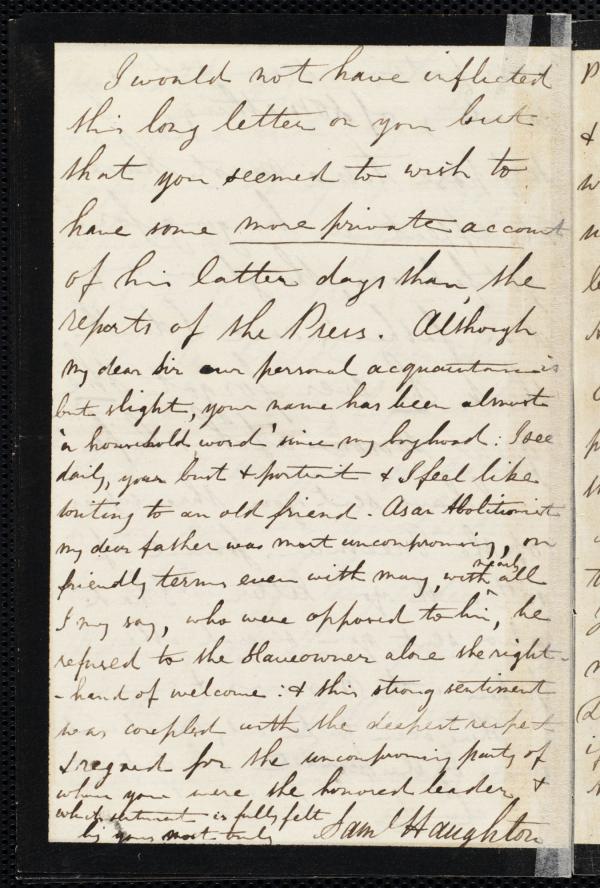 I would not have inflicted
this long letter on you but
that you seemed to wish to
have some more private account
of his latter days than the
reports of the Press. Although
my dear Sir our personal acquaintance is
but slight, your name has been almost
'a household word' since my boyhood: I see
daily, your bust & portrait & I feel like
writing to an old friend. As an Abolitionist
my dear father was most uncompromising, on
friendly terms even with many, with nearly all
I my say, who were opposed to him, he
refused to the Slaveowner alone the right-
-hand of welcome: & this strong sentiment
was coupled with the deepest respect
& regard for the uncompromising party of
whom you were the honored leader, &
which sentiment is fully felt
by yours most truly Saml Haughton